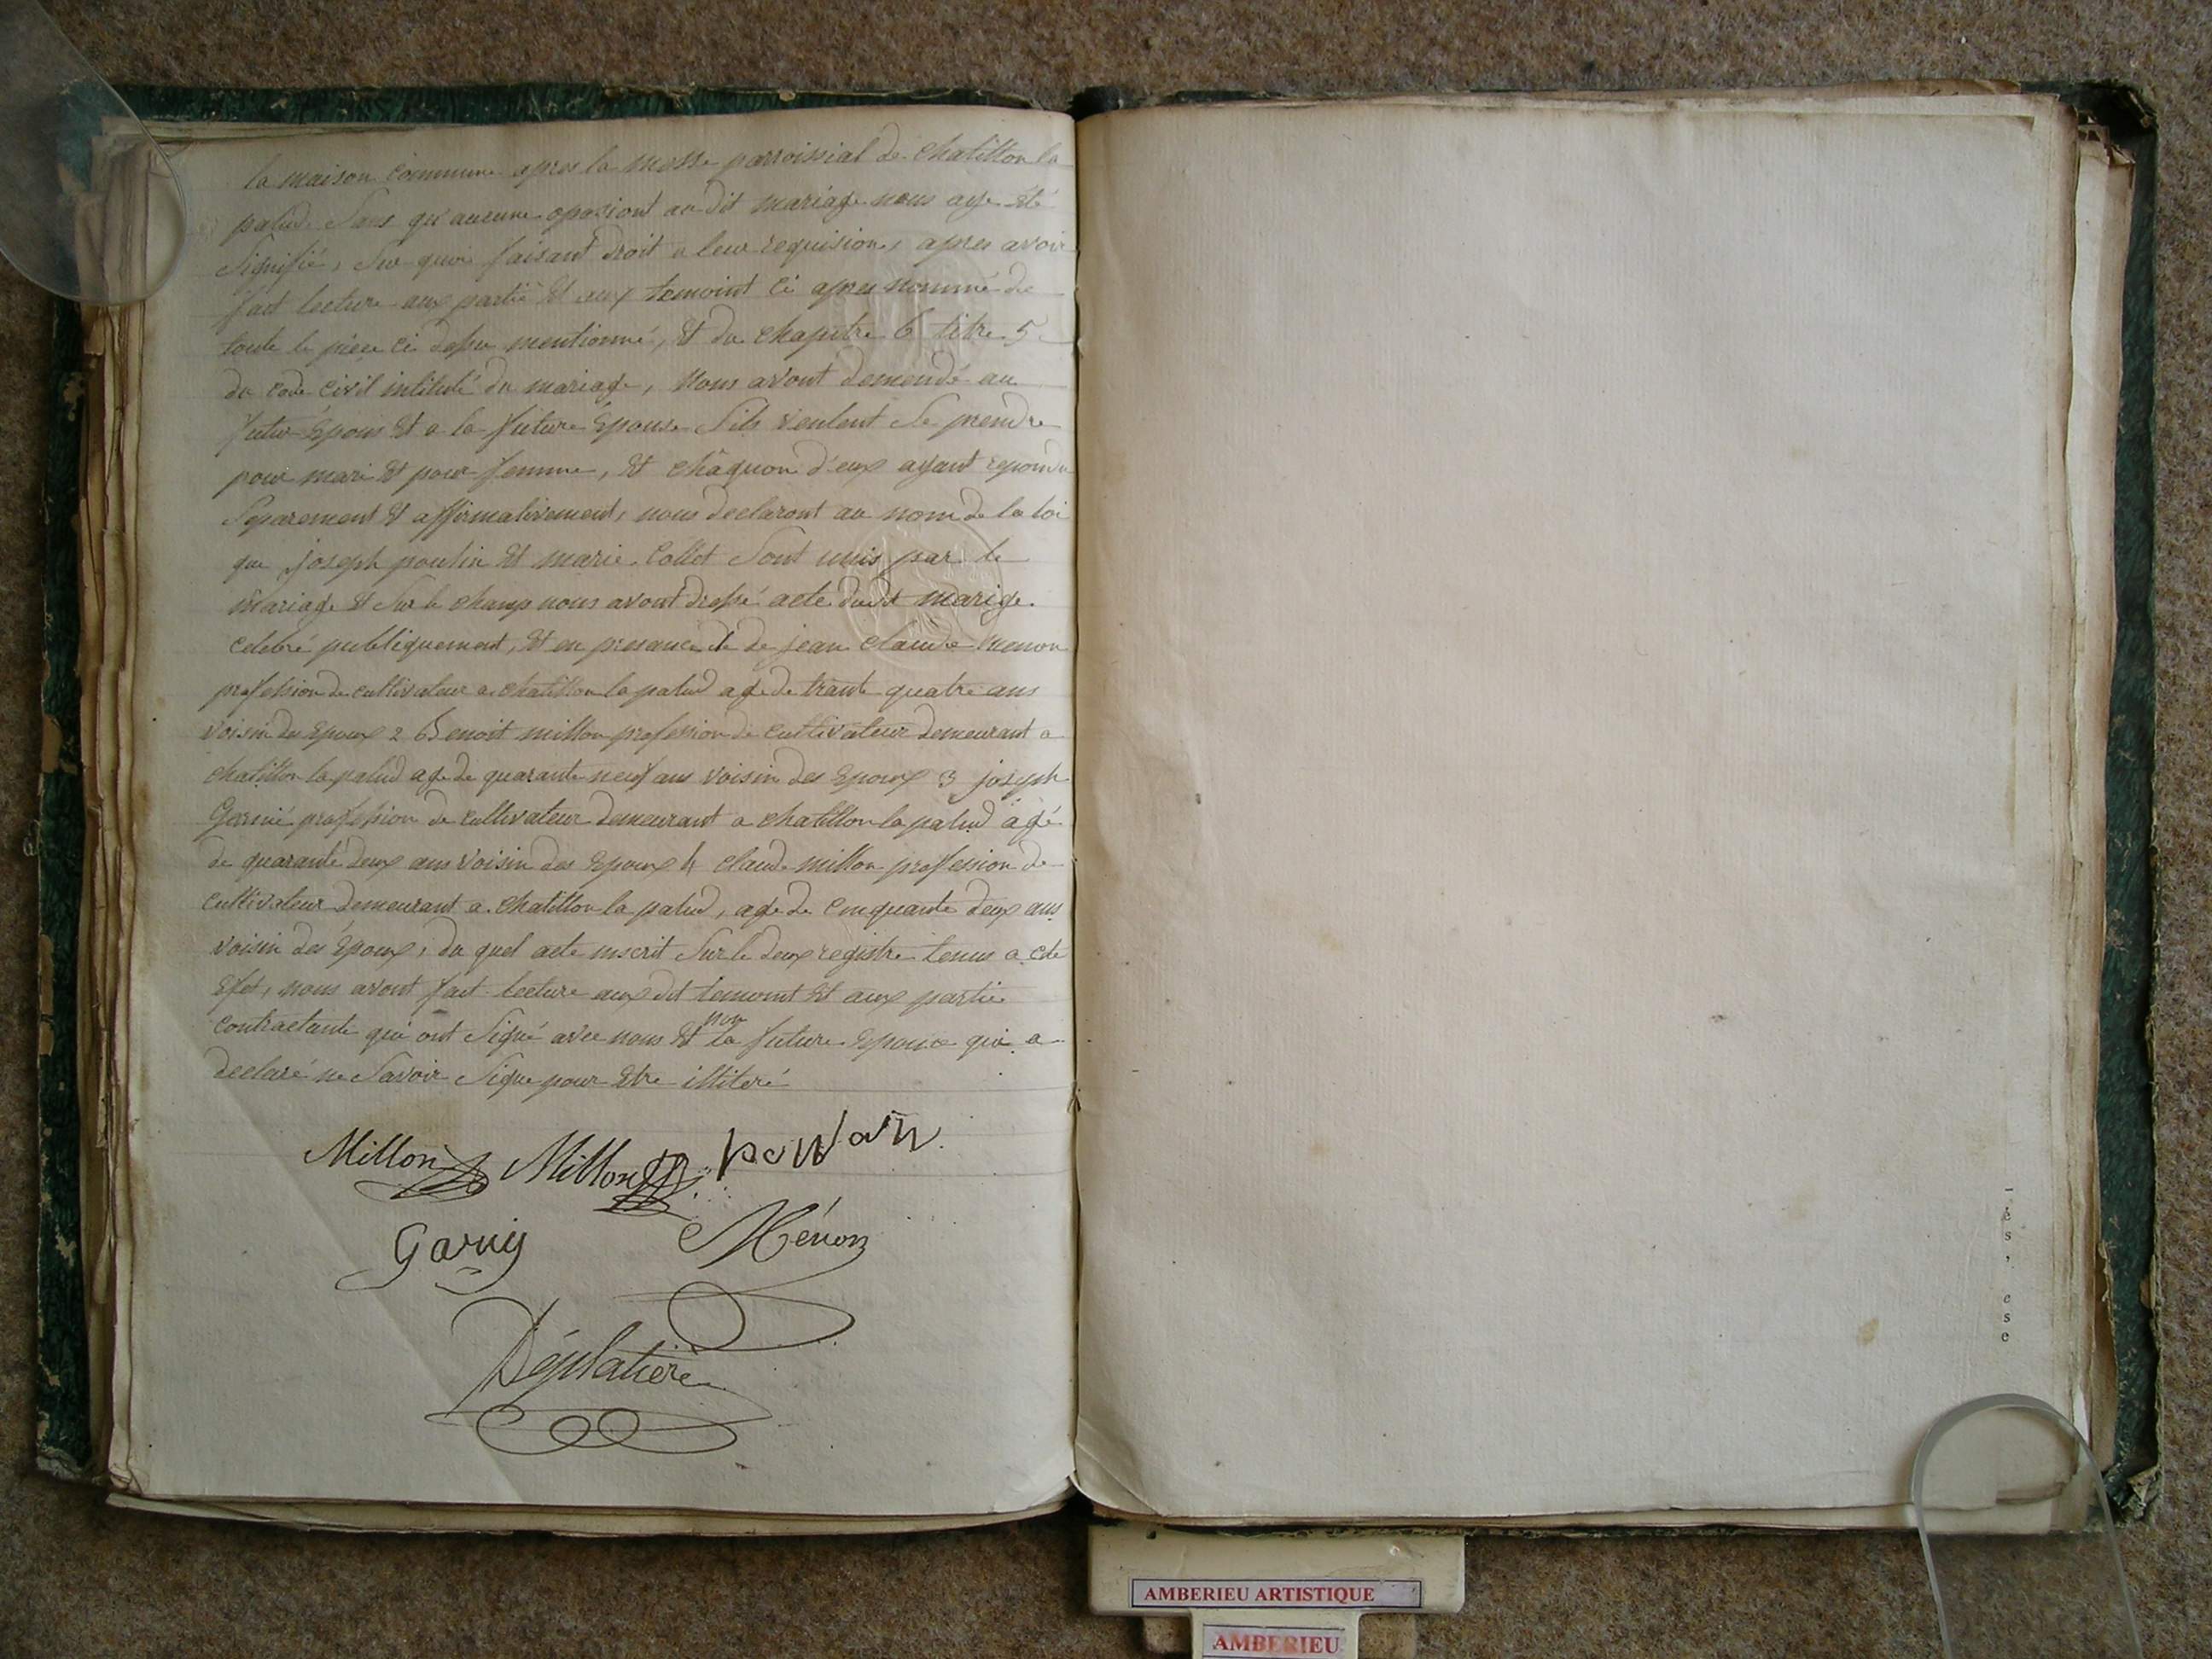 la maison commune apres la messe parroissial de chatillon la
palud Sans qu'aucune oposiont au dit mariage nous aye été
Signifié, Sur quoi faisant droit a leur requision, apres avoir
fait lecture aux partie et aux temoint ci apres nommé de
toute le piece ci dessu mentionné, et du chapitre 6 titre 5
du code civil intitulé du mariage, nous avont demendé au
futur Epoux et a la future Epouse S'ils veulent Se prendre
pour mari et pour femme, et châquon d'eux ayant repondu
Separement et affirmativement, nous declaront au nom de la loi
que joseph poulin et marie Collet Sont unis par le
mariage et Sur le champ nous avont dressé acte dudit marige
celebré publiquement, et en presance de de jean claude menon
profession de cultivateur a chatillon la palud age de trante quatre ans
voisin des Epoux 2 Benoit millon profession de cultivateur demeurant a
chatillon la palud age de quarante neuf ans voisin des Epoux 3 joseph
profession de cultivateur demeurant a chatillon la palud âgé
de quarante deux ans voisin des Epoux 4 claude millon profession de
cultivateur demeurant a chatillon la palud, age de cinquante deux ans
voisin des Epoux, du quel acte inscrit Sur le deux registre tenus a cete
Efet, nous avont fait lecture aux dit temoint et aux partie
contractante qui ont Signé avec nous et non la future Epouse qui a
declaré ne Savoir Signe pour Etre illiteré
Millon Millon
Ménon
Déplatière
-
é
s
,
e
s
e
AMBERIEU ARTISTIQUE
AMBERIEU